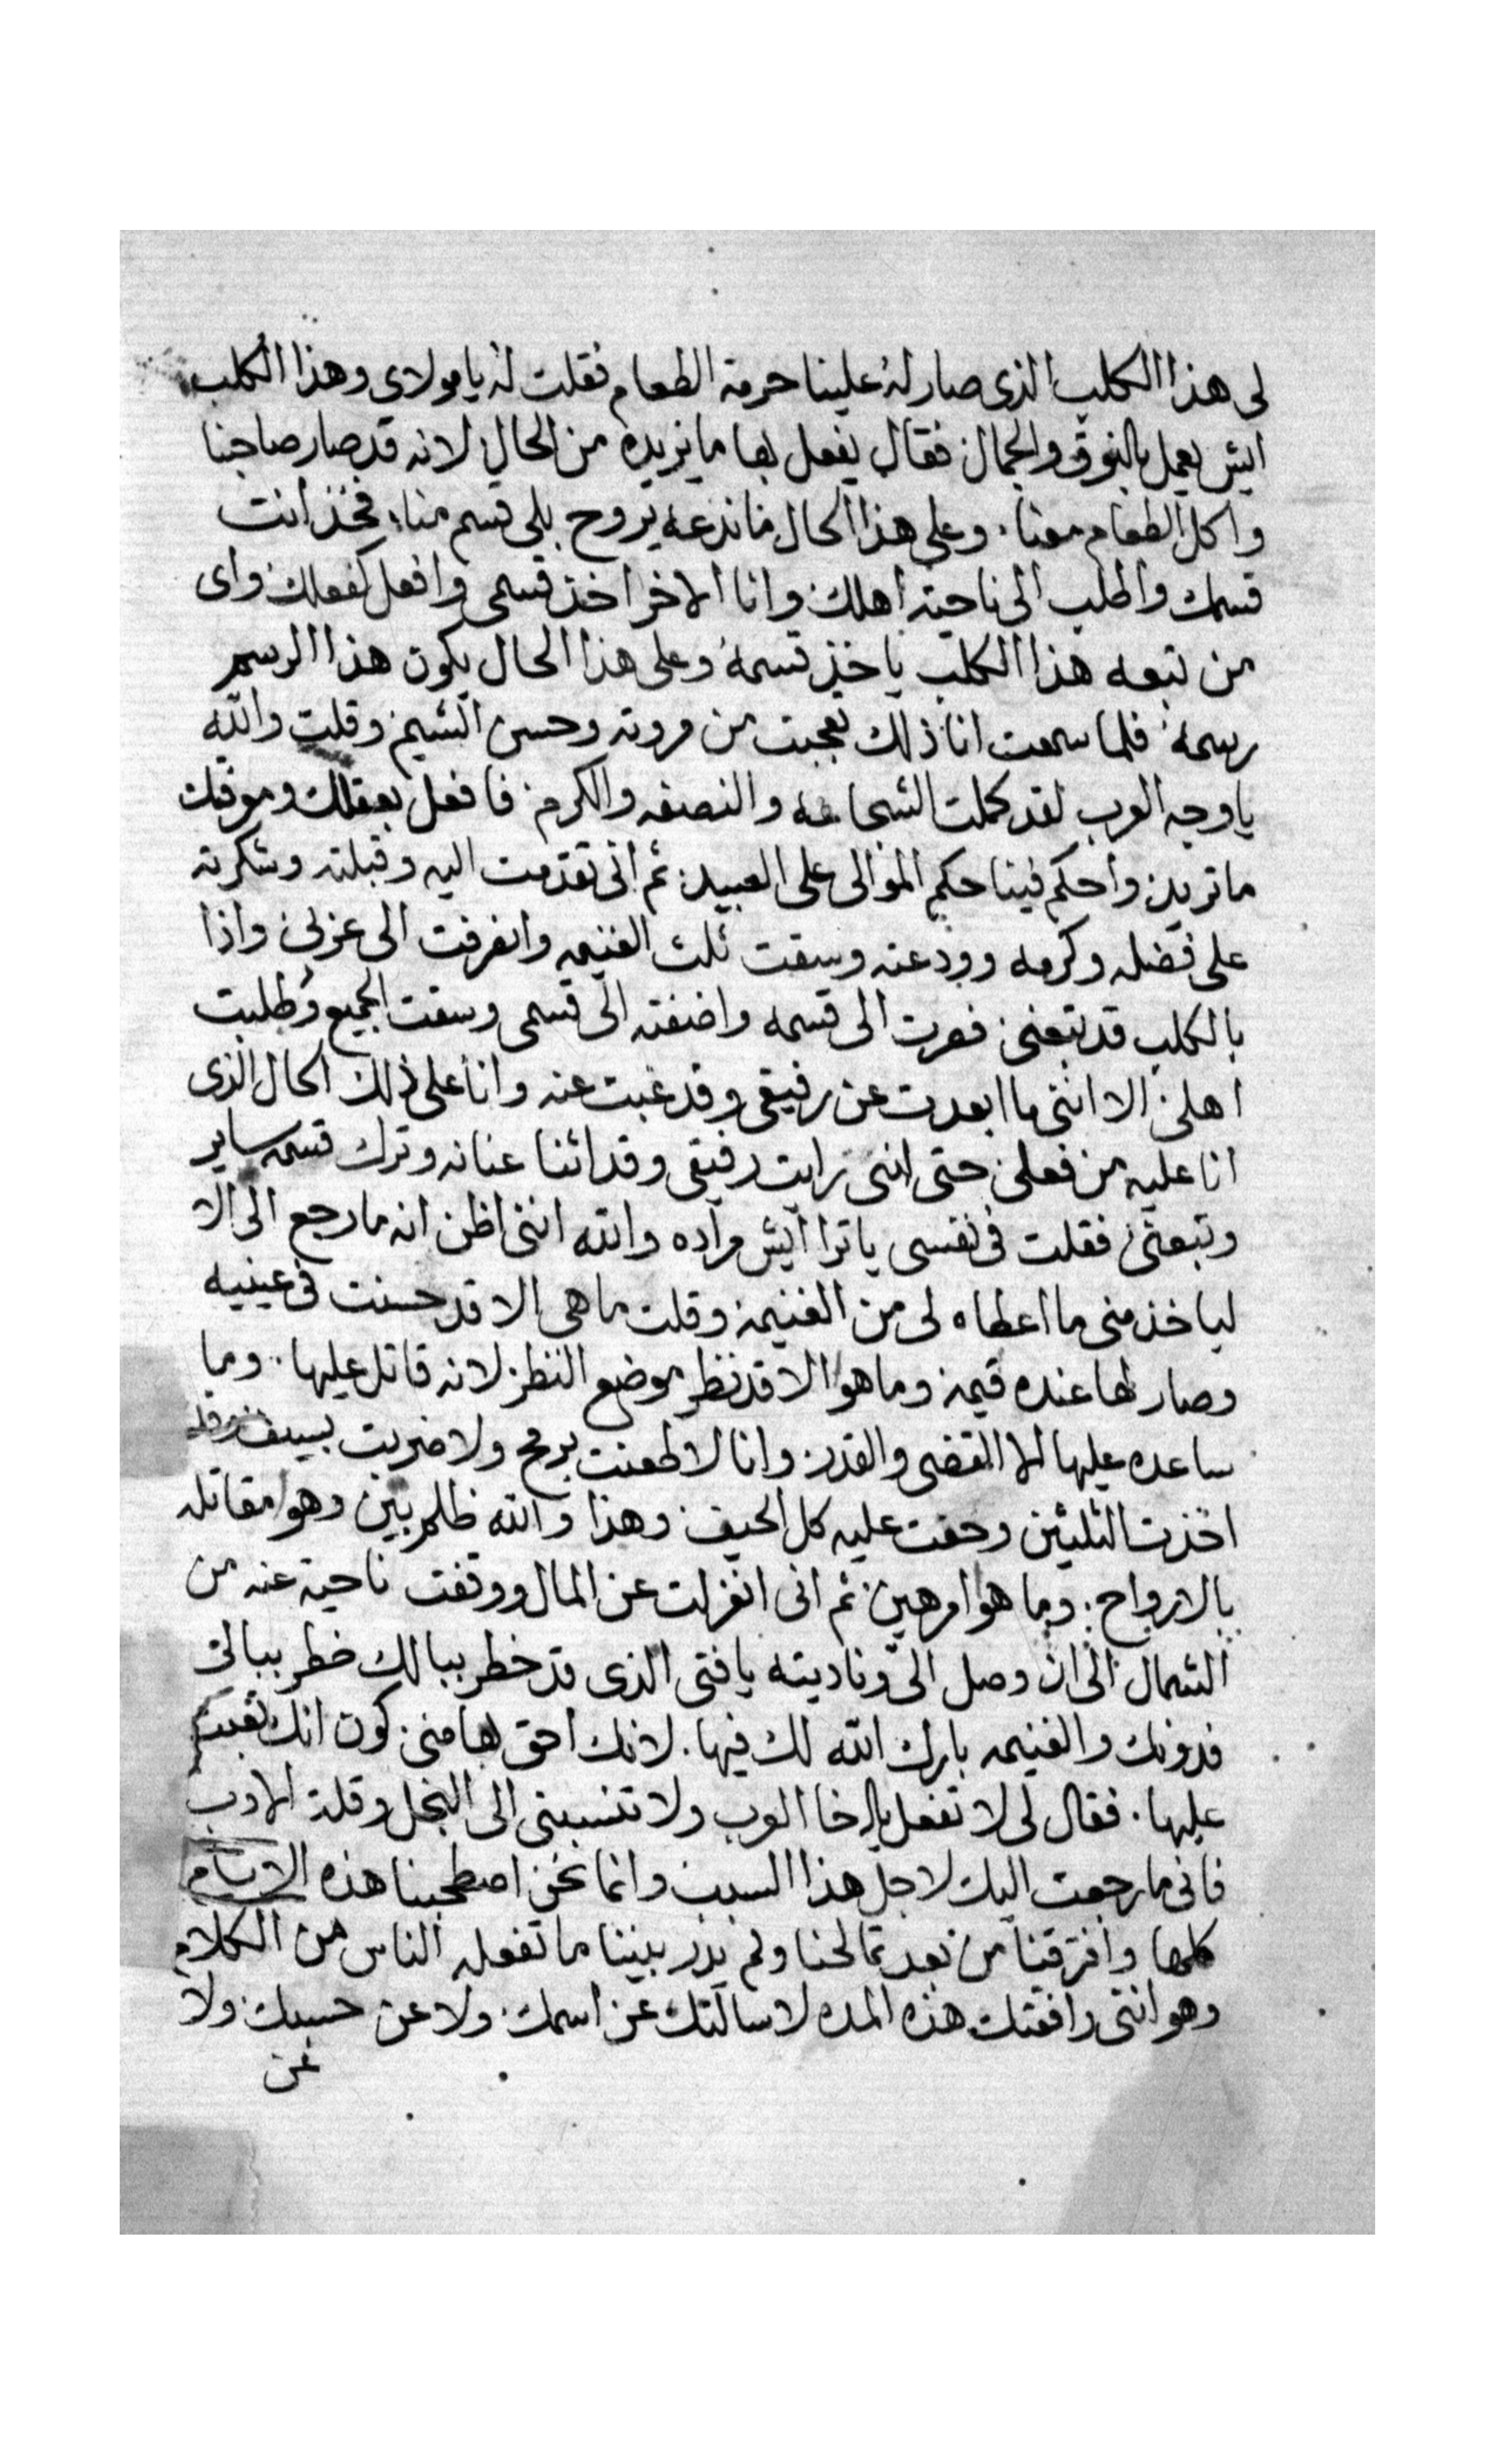 لى هذا الكلب الذى صار له علينا حرمة الطعام فقلت له يا مولاى وهذا الكلب
ايش يعمل بالنوق والجمال فقال يفعل بها ما يريده من الحال لانه قد صار صاحبنا
واكل الطعام معنا . وعلى هذا الحال ما ندعه يروح بلى قسم منا فخذ انت
قسمك واطلب الى ناحية اهلك وانا الاخر اخذ قسمى وافعل كفعلك واى
من تبعه هذا الكلب ياخذ قسمه وعلى هذا الحال يكون هذا الرسم
رسمه فلما سمعت انا ذلك تعجبت من مروته وحسن الشيم وقلت والله
يا وجه العرب لقد كملت الشجاعه والنصفه والكرم فافعل بعقلك ومروتك
ما تريد واحكم فينا حكم الموالى على العبيد ثم انى تقدمت اليه وقبلته وشكرته
على فضله وكرمه وودعته وسقت ثلث الغنيمه وانفرقت الى عزلى واذا
بالكلب قد تبعنى فعرت الى قسمه واضفته الى قسمى وسقت الجميع وطلبت
اهلى الا اننى ما ابعدت عن رفيقى وقد غبت عنه وانا على ذلك الحال الذى
انا عليه من فعلى حتى اننى رايت رفيقى وقد اثنا عنانه وترك قسمه ساير
وتبعنى فقلت فى نفسى يا ترا ايش مراده والله اننى اظن انه ما رجع الى الا
لياخذ منى ما اعطاه لى من الغنيمة وقلت ما هى الا قد حسنت فى عينيه
وصار لها عنده قيمة وما هو الا قد نظر موضع النظر لانه قاتل عليها . وما
ساعده عليها الا القضى والقدر وانا لا طعنت برمح ولا ضربت بسيف وقد
اخذت الثلثين وحفت عليه كل الحيف وهذا والله ظلم بين وهو مقاتله
بالارواح . وما هو امر هين ثم انى انعزلت عن المال ووقفت ناحية عنه من
الشمال الى ان وصل الىّ وناديته يا فتى الذى قد خطر ببالك خطر ببالى
فدونك والغنيمه بارك الله لك فيها . لانك احق بها منى كون انك تعبت
عليها . فقال لى لا تفعل يا اخا العرب ولا تنسبنى الى البخل وقلة الادب
فانى ما رجعت اليك لاجل هذا السبب وانما نحن اصطحبنا هذه الايام
كلها وافترقنا من بعد تمالحنا ولم يدر بيننا ما تفعله الناس من الكلام
وهو اننى رافقتك هذه المده لا سالتك عن اسمك ولا عن حسبك ولا
عن